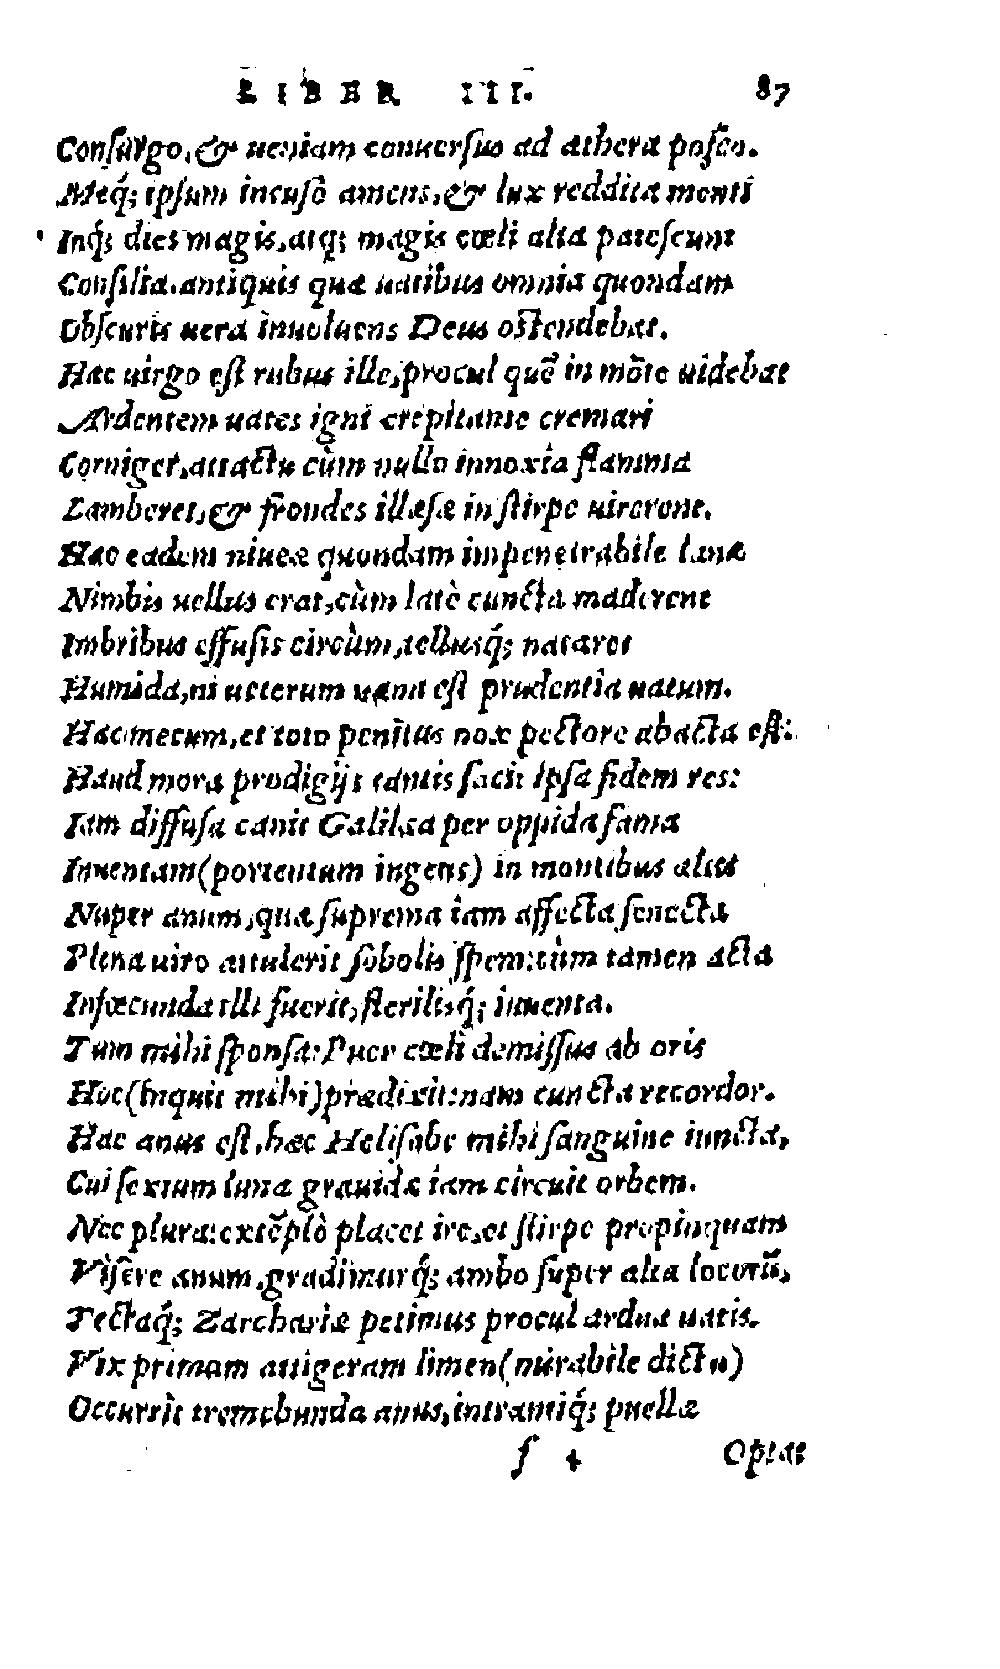 LIBER III. 87
Conſurgo, & ueniam conuerſus ad æthera poſco.
Meq́; ipſum incuſo amens, & lux reddita menti
Inq́; dies magis, atq; magis cœli alta pateſcunt
Conſilia. antiquis quæ uatibus omnia quondam
Obſcuris uera inuoluens Deus oſtendebat.
Hæc uirgo eſt rubus ille, procul quẽ in mõte uidebat
Ardentem uates igni crepitante cremari
Corniger, attactu cùm nullo innoxia flamma
Lamberet, & frondes illæſæ in ſtirpe uirerent.
Hæc eadem niueæ quondam impenetrabile lanæ
Nimbis uellus erat, cùm latè cuncta maderent
Imbribus effuſis circùm, tellusq́; nataret
Humida, ni ueterum uana eſt prudentia uatum.
Hæc mecum, et toto penitus nox pectore abacta eſt:
Haud mora prodigijs tantis facit ipſa fidem res:
Iam diffuſa canit Galilæa per oppida fama
Inuentam (portentum ingens) in montibus altis
Nuper anum, quæ ſuprema iam affecta ſenecta
Plena uiro attulerit ſobolis ſpem: cùm tamen acta
Infœcunda illi fuerit, ſterilisq́; iuuenta.
Tum mihi ſponſa: Puer cœli demiſſus ab oris
Hoc (inquit mihi) prædixit: nam cuncta recordor.
Hæc anus eſt, hæc Heliſabe mihi ſanguine iuncta,
Cui ſextum luna grauidæ iam circuit orbem.
Nec plura: extẽplò placet ire, et ſtirpe propinquam
Viſere anum, gradimurq́; ambo ſuper alta locorũ,
Tectaq́; Zarchariæ petimus procul ardua uatis.
Vix primam attigeram limen (mirabile dictu)
Occurrit tremebunda anus, intrantiq́; puellæ
f 4 Optat